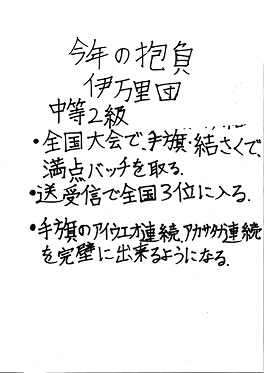 今年の抱負
伊万里団
中等2級
・全国大会で、手旗・結さくで、
満点バッチを取る.
・送受信で全国3位に入る.
・手旗のアイウエオ連続、アカサタナ連続
を完璧に出来るようになる.